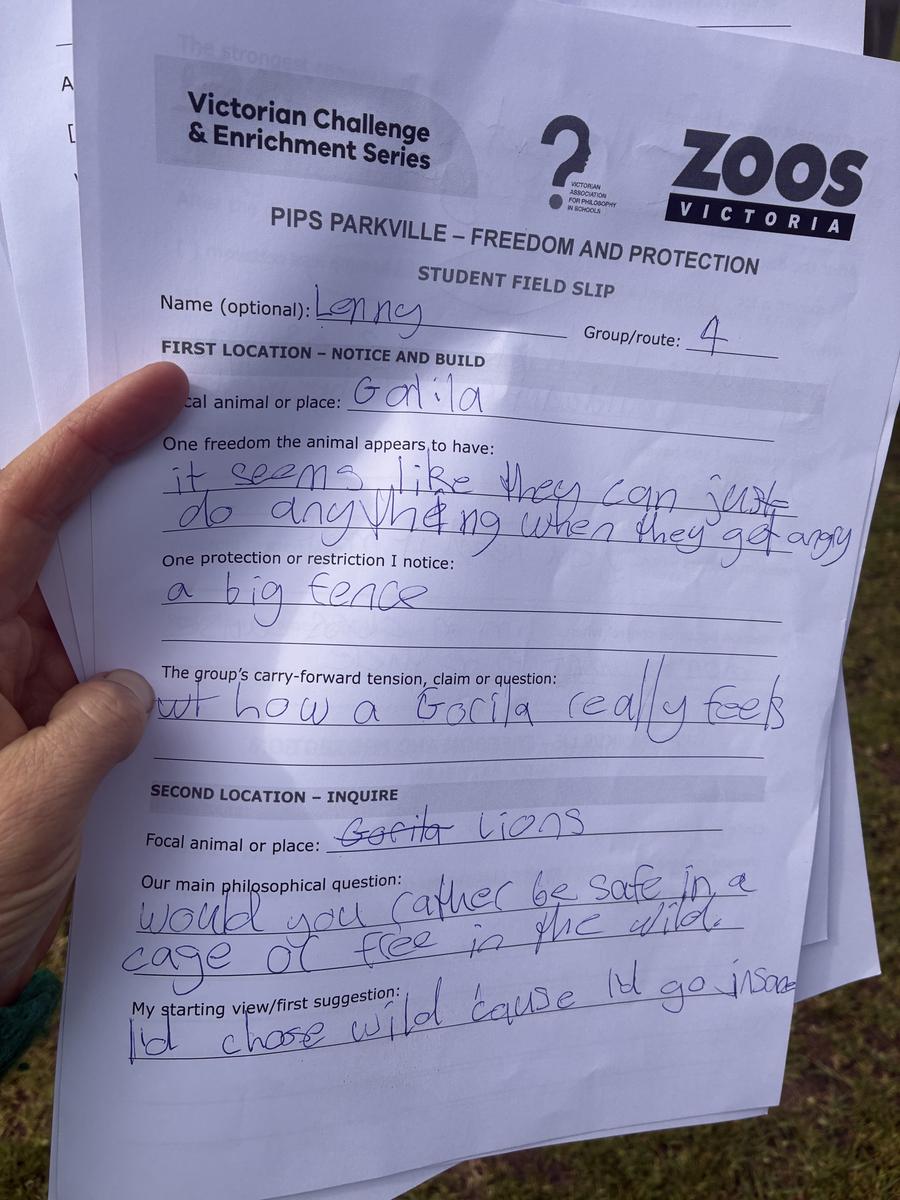 Victorian Challenge
& Enrichment Series
VICTORIAN
ASSOCIATION
FOR PHILOSOPHY
IN SCHOOLS
ZOOS
VICTORIA
PIPS PARKVILLE – FREEDOM AND PROTECTION
STUDENT FIELD SLIP
Name (optional): Lenny Group/route: 4
FIRST LOCATION – NOTICE AND BUILD
cal animal or place:
One freedom the animal appears to have:
it seems like they can just
do anything when they get angry
One protection or restriction I notice:
a big fence
The group's carry-forward tension, claim or question:
how a Gorila really feels
SECOND LOCATION – INQUIRE
Focal animal or place: Gorila Lions
Our main philosophical question:
would you rather be safe in a
cage or free in the wild.
My starting view/first suggestion:
I'd chose wild 'cause I'd go insane